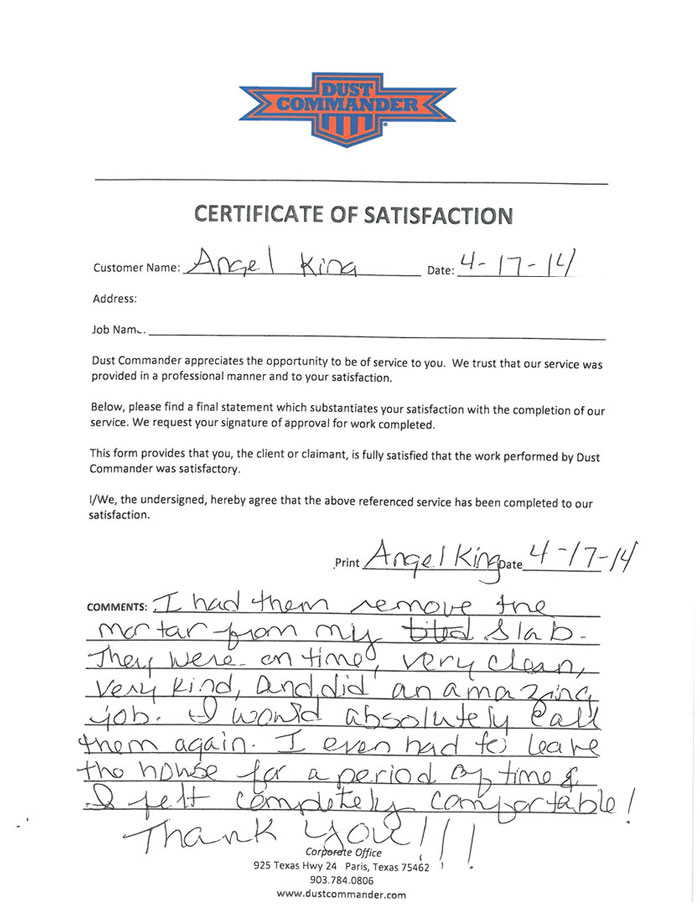 DUST
COMMANDER
CERTIFICATE OF SATISFACTION
Customer Name: Angel King Date: 4-17-14
Address:
Job Name:
Dust Commander appreciates the opportunity to be of service to you. We trust that our service was
provided in a professional manner and to your satisfaction.
Below, please find a final statement which substantiates your satisfaction with the completion of our
service. We request your signature of approval for work completed.
This form provides that you, the client or claimant, is fully satisfied that the work performed by Dust
Commander was satisfactory.
I/We, the undersigned, hereby agree that the above referenced service has been completed to our
satisfaction.
Print Angel King Date 4-17-14
COMMENTS: I had them remove the
mortar from my slab.
They were on time, very clean,
very kind, and did an amazing
job. I would absolutely call
them again. I even had to leave
the house for a period of time &
I felt completely comfortable!
Thank you!!!
Corporate Office
925 Texas Hwy 24 Paris, Texas 75462
903.784.0806
www.dustcommander.com